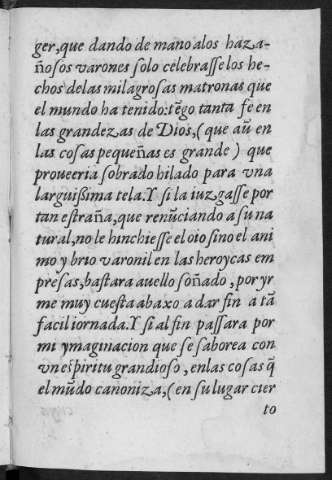 ger, que dando de mano alos haza-
ñosos varones solo celebrasse los he-
chos delas milagrosas matronas que
el mundo ha tenido: tẽgo tanta fe en
las grandezas de Dios, (que aũ en
las cosas pequeñas es grande) que
proueeria sobrado hilado para vna
larguissima tela. Y si la iuzgasse por
tan estraña, que renũciando a su na
tural, no le hinchiesse el oio sino el ani
mo y brio varonil en las heroycas em
presas, bastara auello soñado, por yr
me muy cuesta abaxo a dar fin a tã
facil iornada. Y si al fin passara por
mi ymaginacion que se saborea con
vn espiritu grandioso, enlas cosas q̃
el mũdo canoniza, (en su lugar cier
to